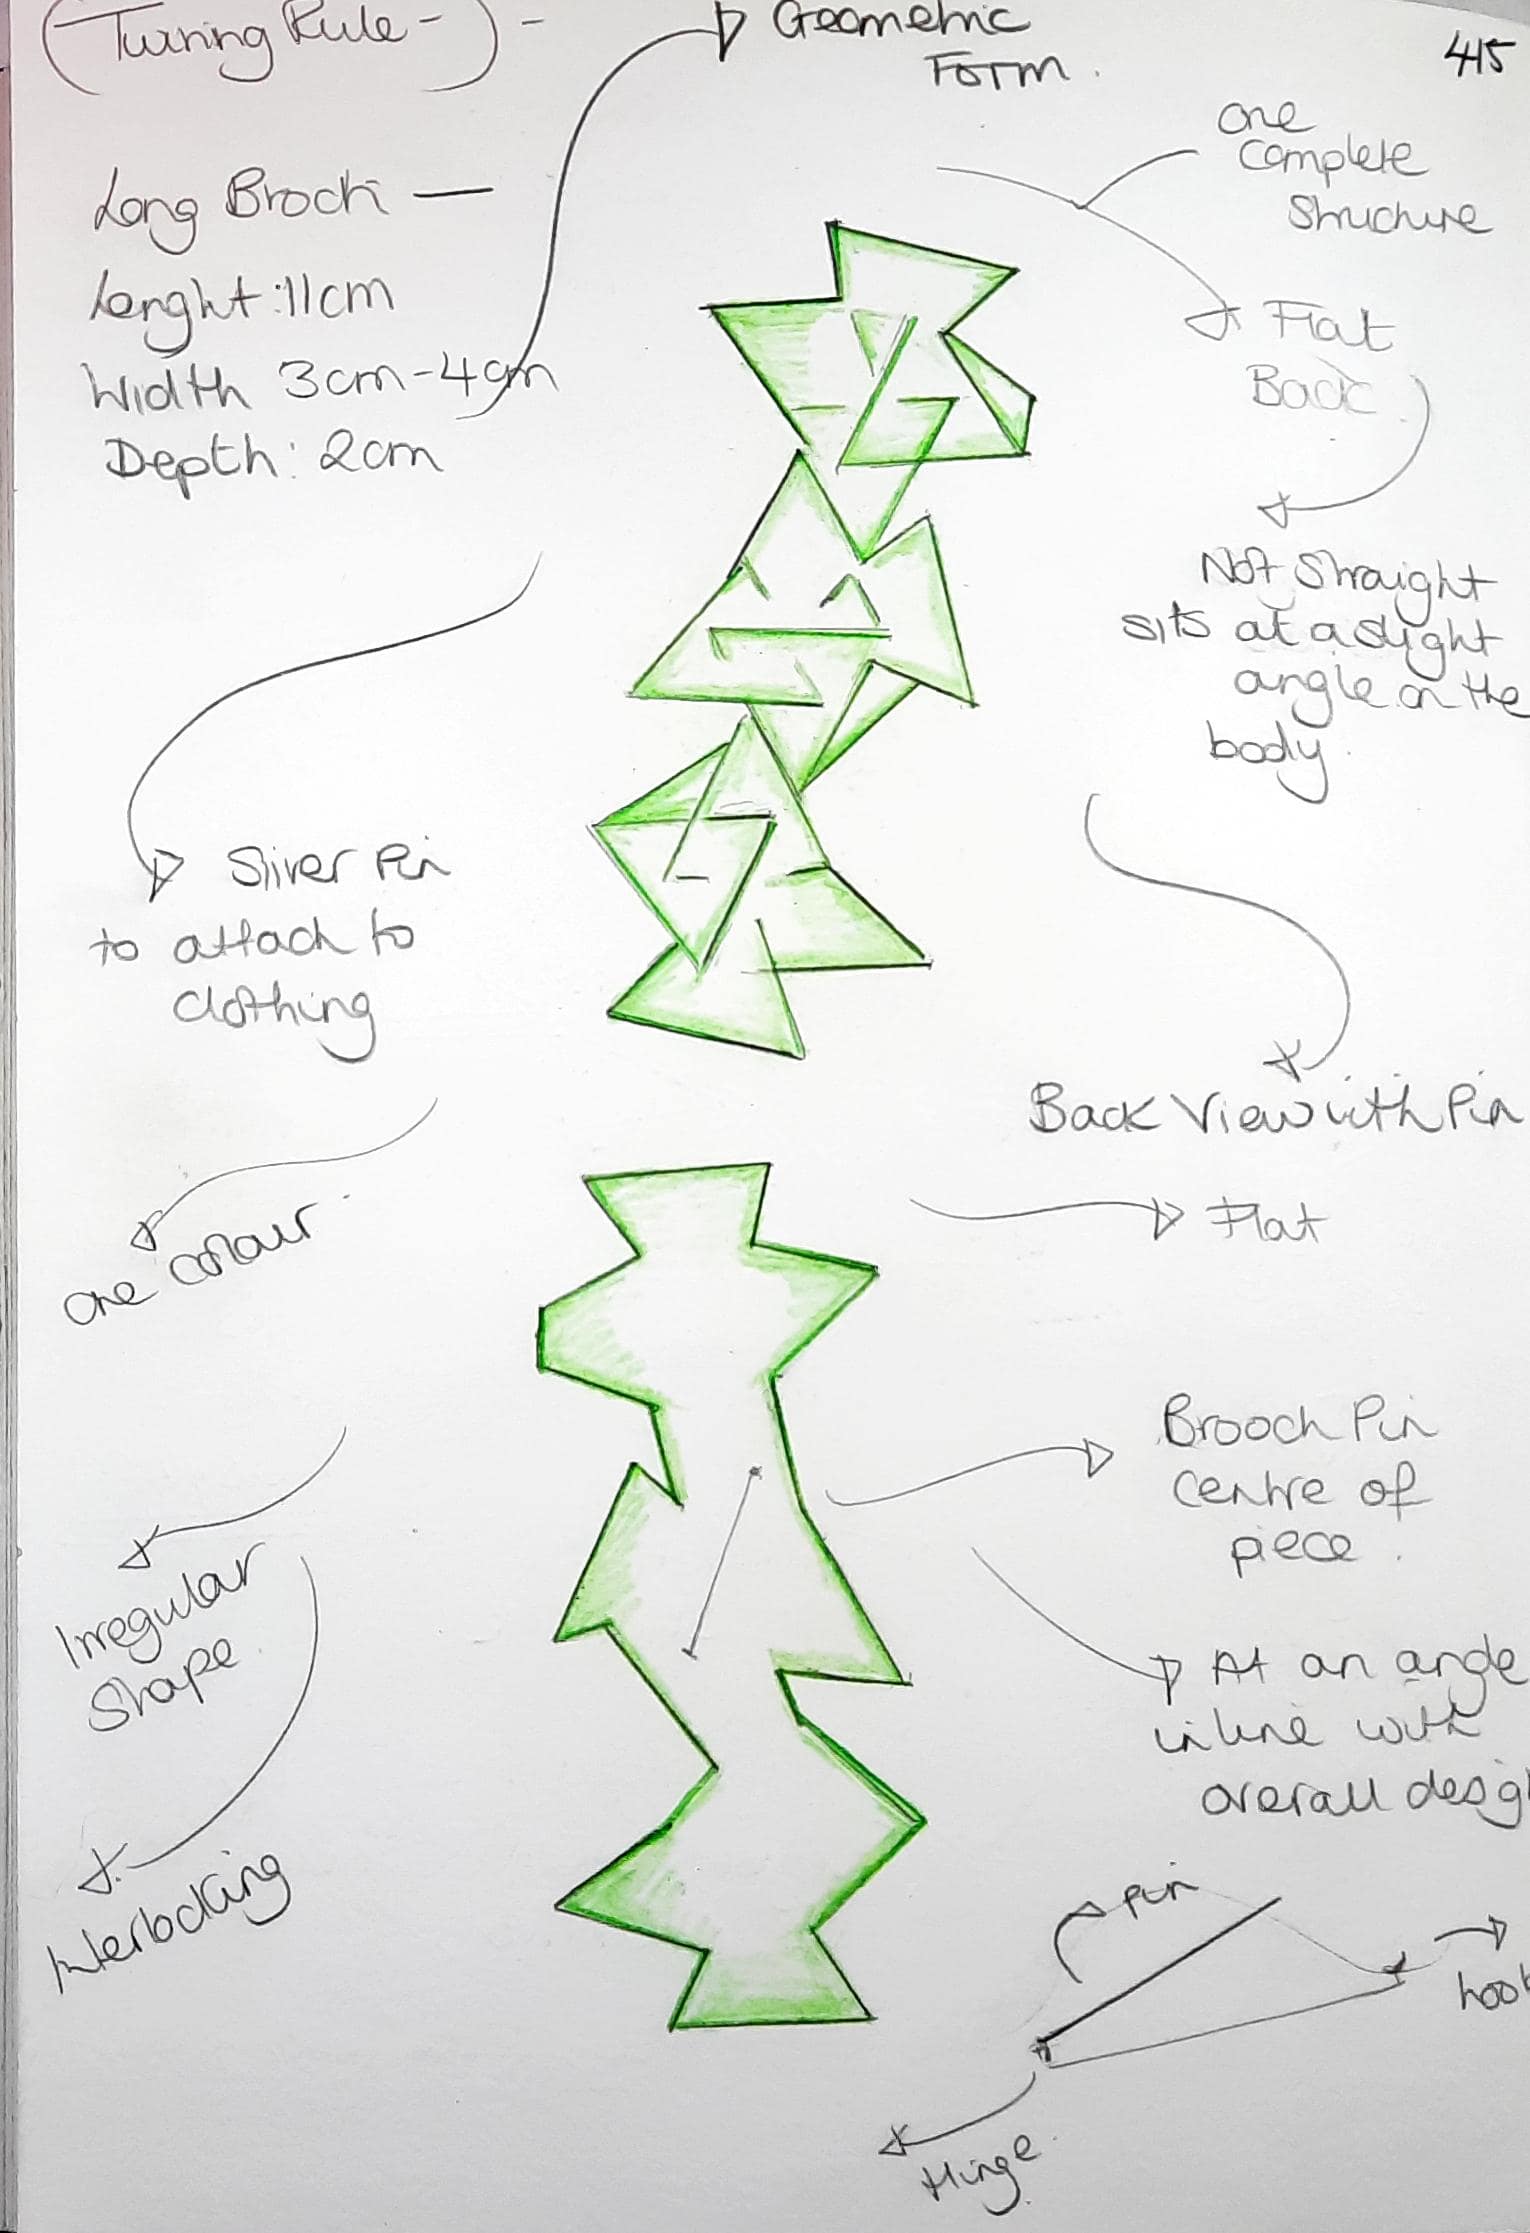 (Turing Rule-) -
Geometric
Form.
415
Long Broch —
Lenght:11cm
Width 3cm-4cm
Depth: 2cm
One
Complete
Structure
Flat
Back
Not Straight
sits at a slight
angle on the
body.
Sliver Pin
to attach to
Clothing
Back View with Pin
Flat
One colour
Brooch Pin
Centre of
piece.
Irregular
Shape.
At an angle
inline with
overall desig
Interlocking
Pin
hook
Hinge.